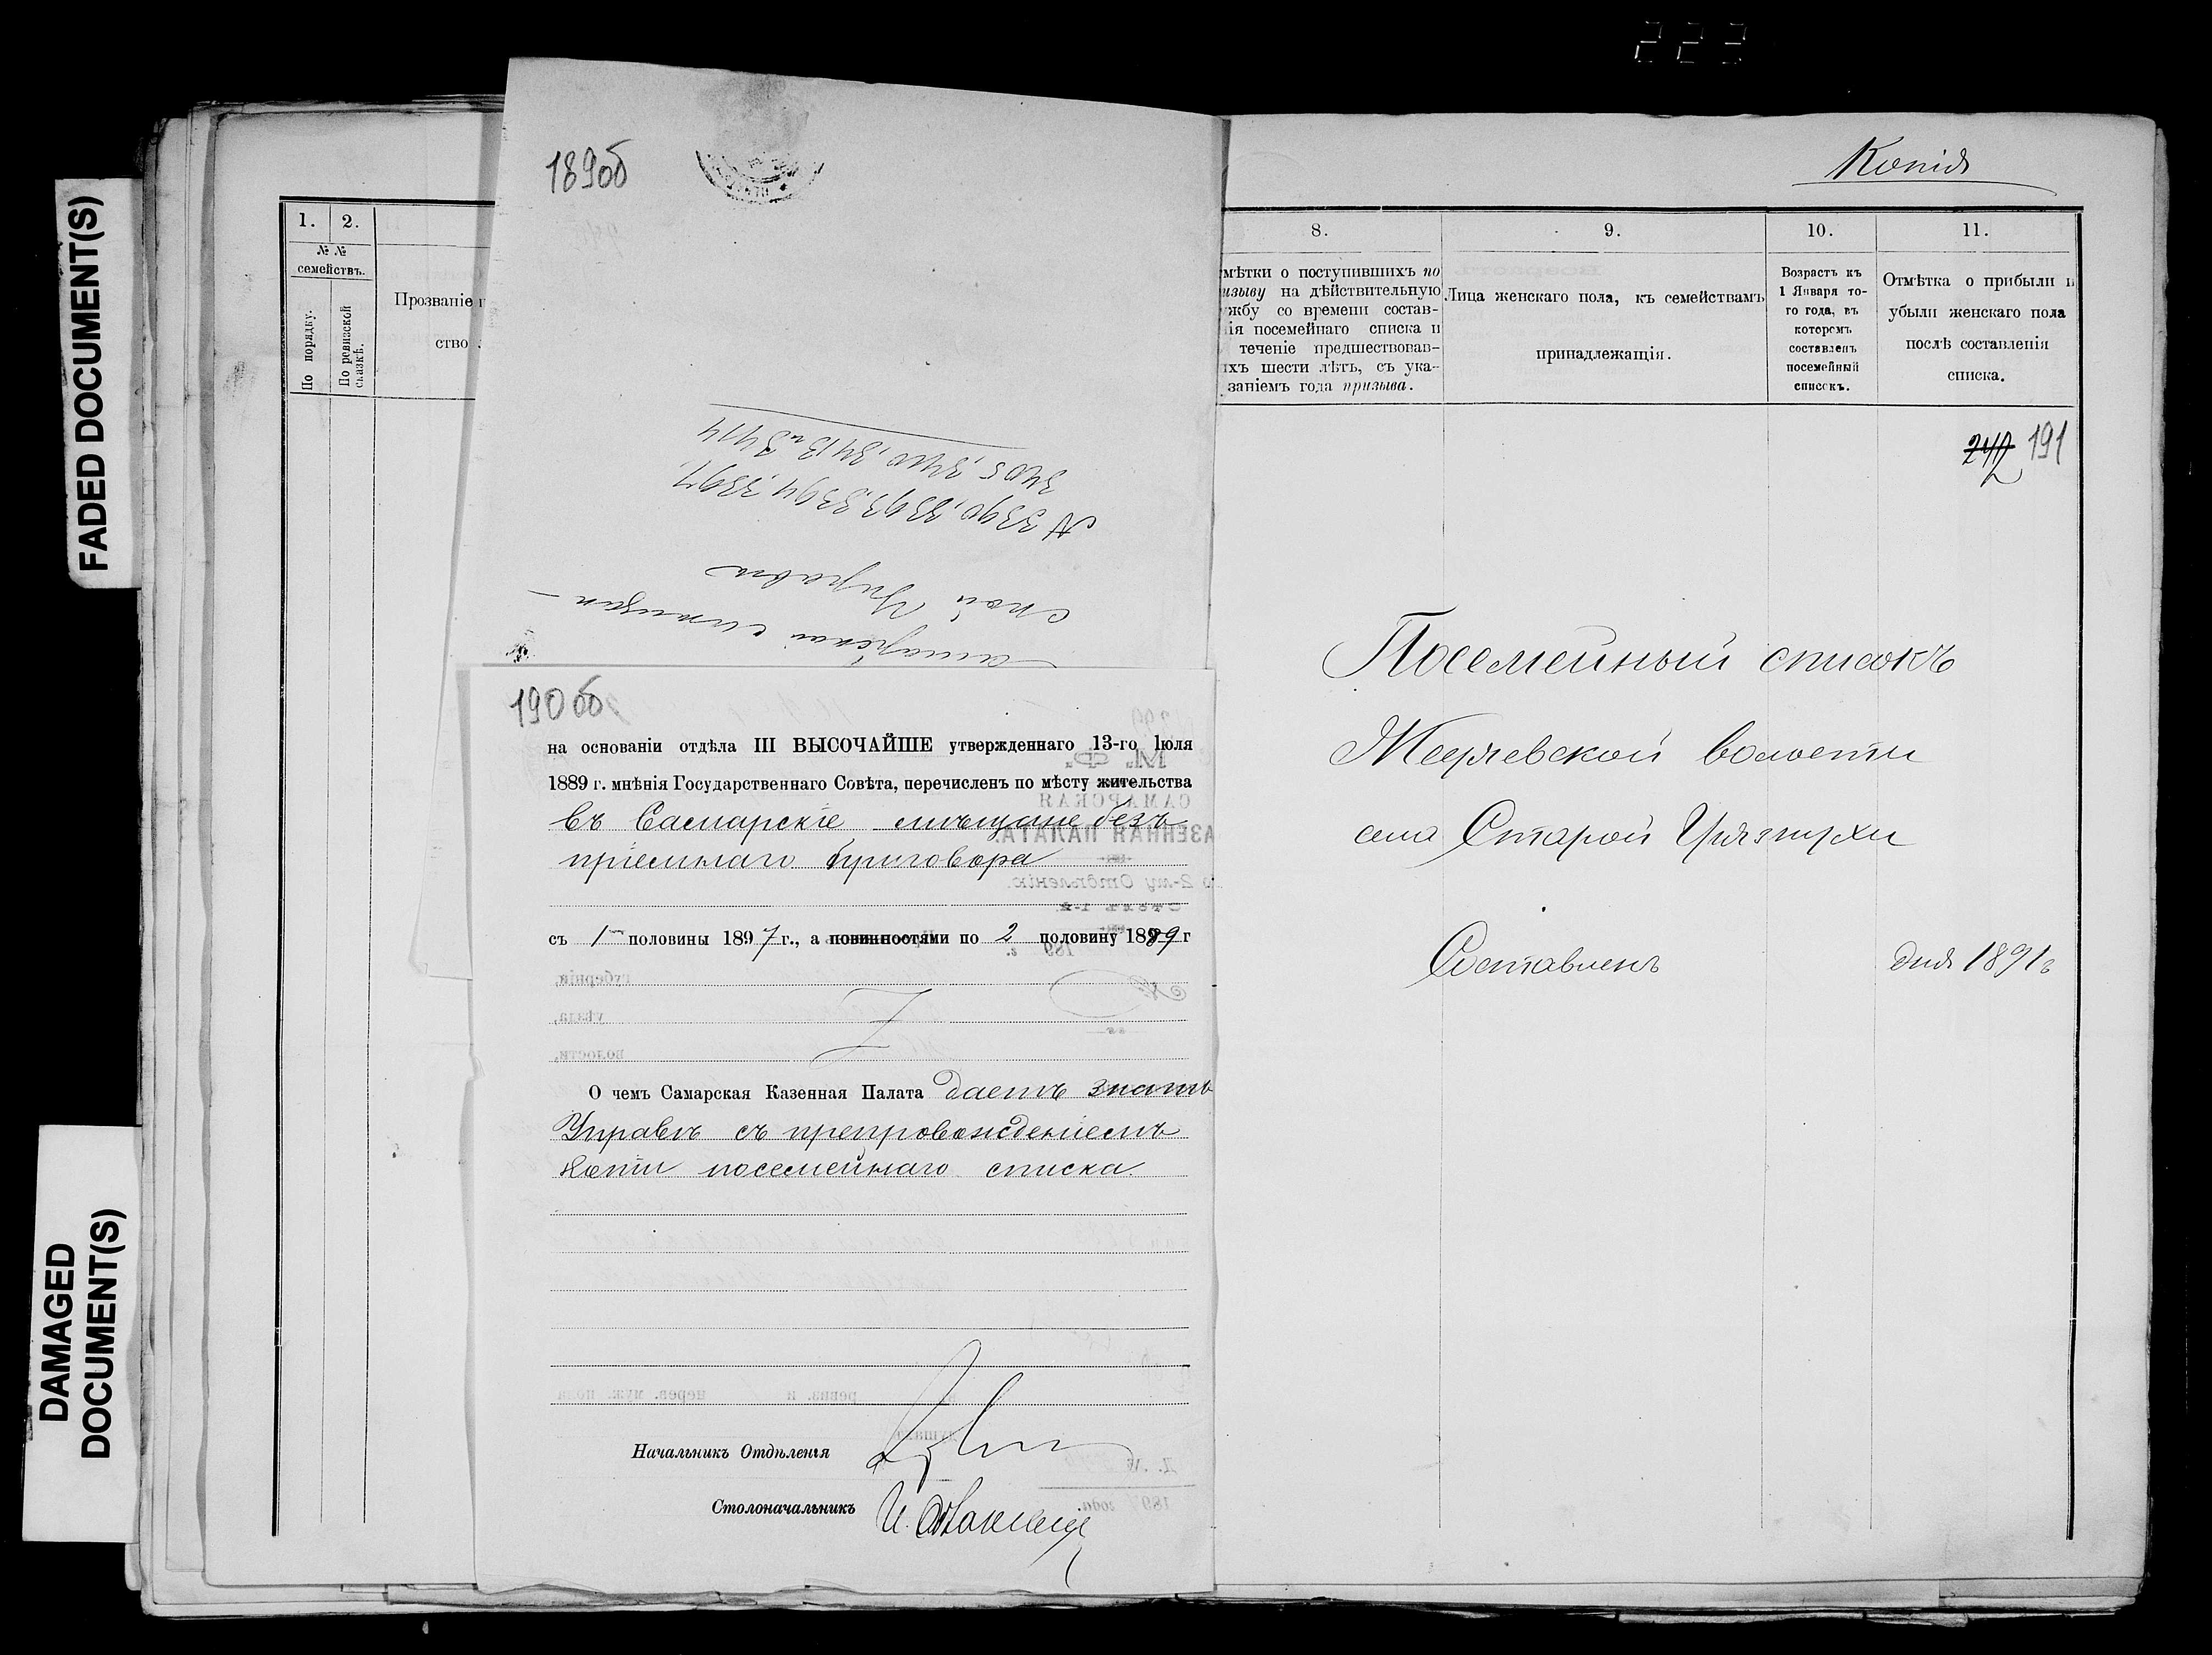 223
FADED DOCUMENT(S)
DAMAGED
DOCUMENT(S)
1.
2.
№ №
семействъ.
По порядку.
По ревизской
сказкѣ.
Прозваніе
ство
189об
№ 3390, 3393, 3394, 3397,
3405, 3410, 3413 и 3414
ской Управы
190об
на основаніи отдѣла III ВЫСОЧАЙШЕ утвержденнаго 13-го Іюля
1889 г. мнѣнія Государственнаго Совѣта, перечисленъ по мѣсту жительства
въ Самарскіе мѣщане безъ
пріемнаго приговора
съ 1 половины 1897 г., а повинностями по 2 половину 1899 г
О чемъ Самарская Казенная Палата даетъ знать
Управѣ съ препровожденіемъ
копіи посемейнаго списка.
Начальникъ Отдѣленія
Столоначальникъ И.
Копія
8.
9.
10.
11.
мѣтки о поступившихъ по
изыву на дѣйствительную
жбу со времени состав-
ія посемейнаго списка и
теченіе предшествовав-
ихъ шести лѣтъ, съ ука-
заніемъ года призыва.
Лица женскаго пола, къ семействамъ
принадлежащія.
Возрастъ къ
1 Января то-
го года, въ
которомъ
составленъ
посемейный
списокъ.
Отмѣтка о прибыли и
убыли женскаго пола
послѣ составленія
списка.
191
Посемейный списокъ
волости
села Старой
Составленъ дня 1891 г